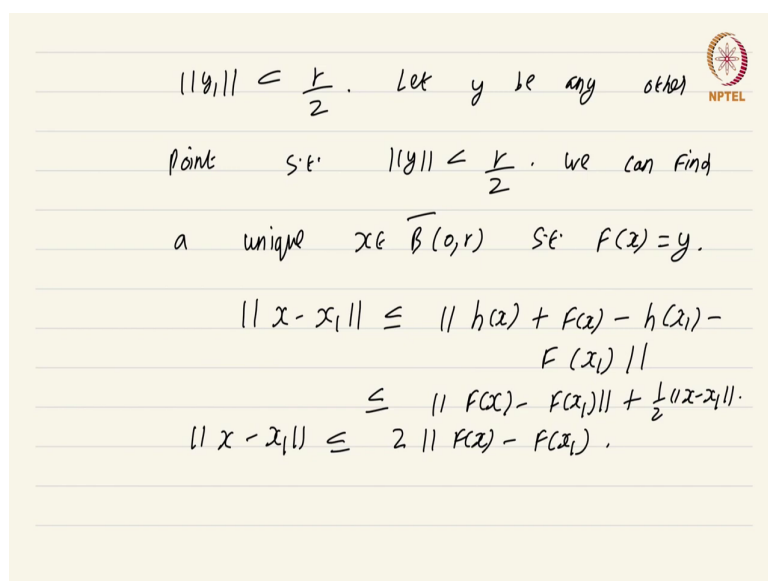 ||y₁|| < r/2 . Let y be any other
NPTEL
Point s.t. ||y|| < r/2 . we can find
a unique x ∈ B̅(0,r) s.t. F(x) = y.
||x - x₁|| ≤ || h(x) + F(x) - h(x₁) -
F(x₁) ||
≤ || F(x) - F(x₁)|| + 1/2 ||x-x₁||.
||x - x₁|| ≤ 2 || F(x) - F(x₁) .